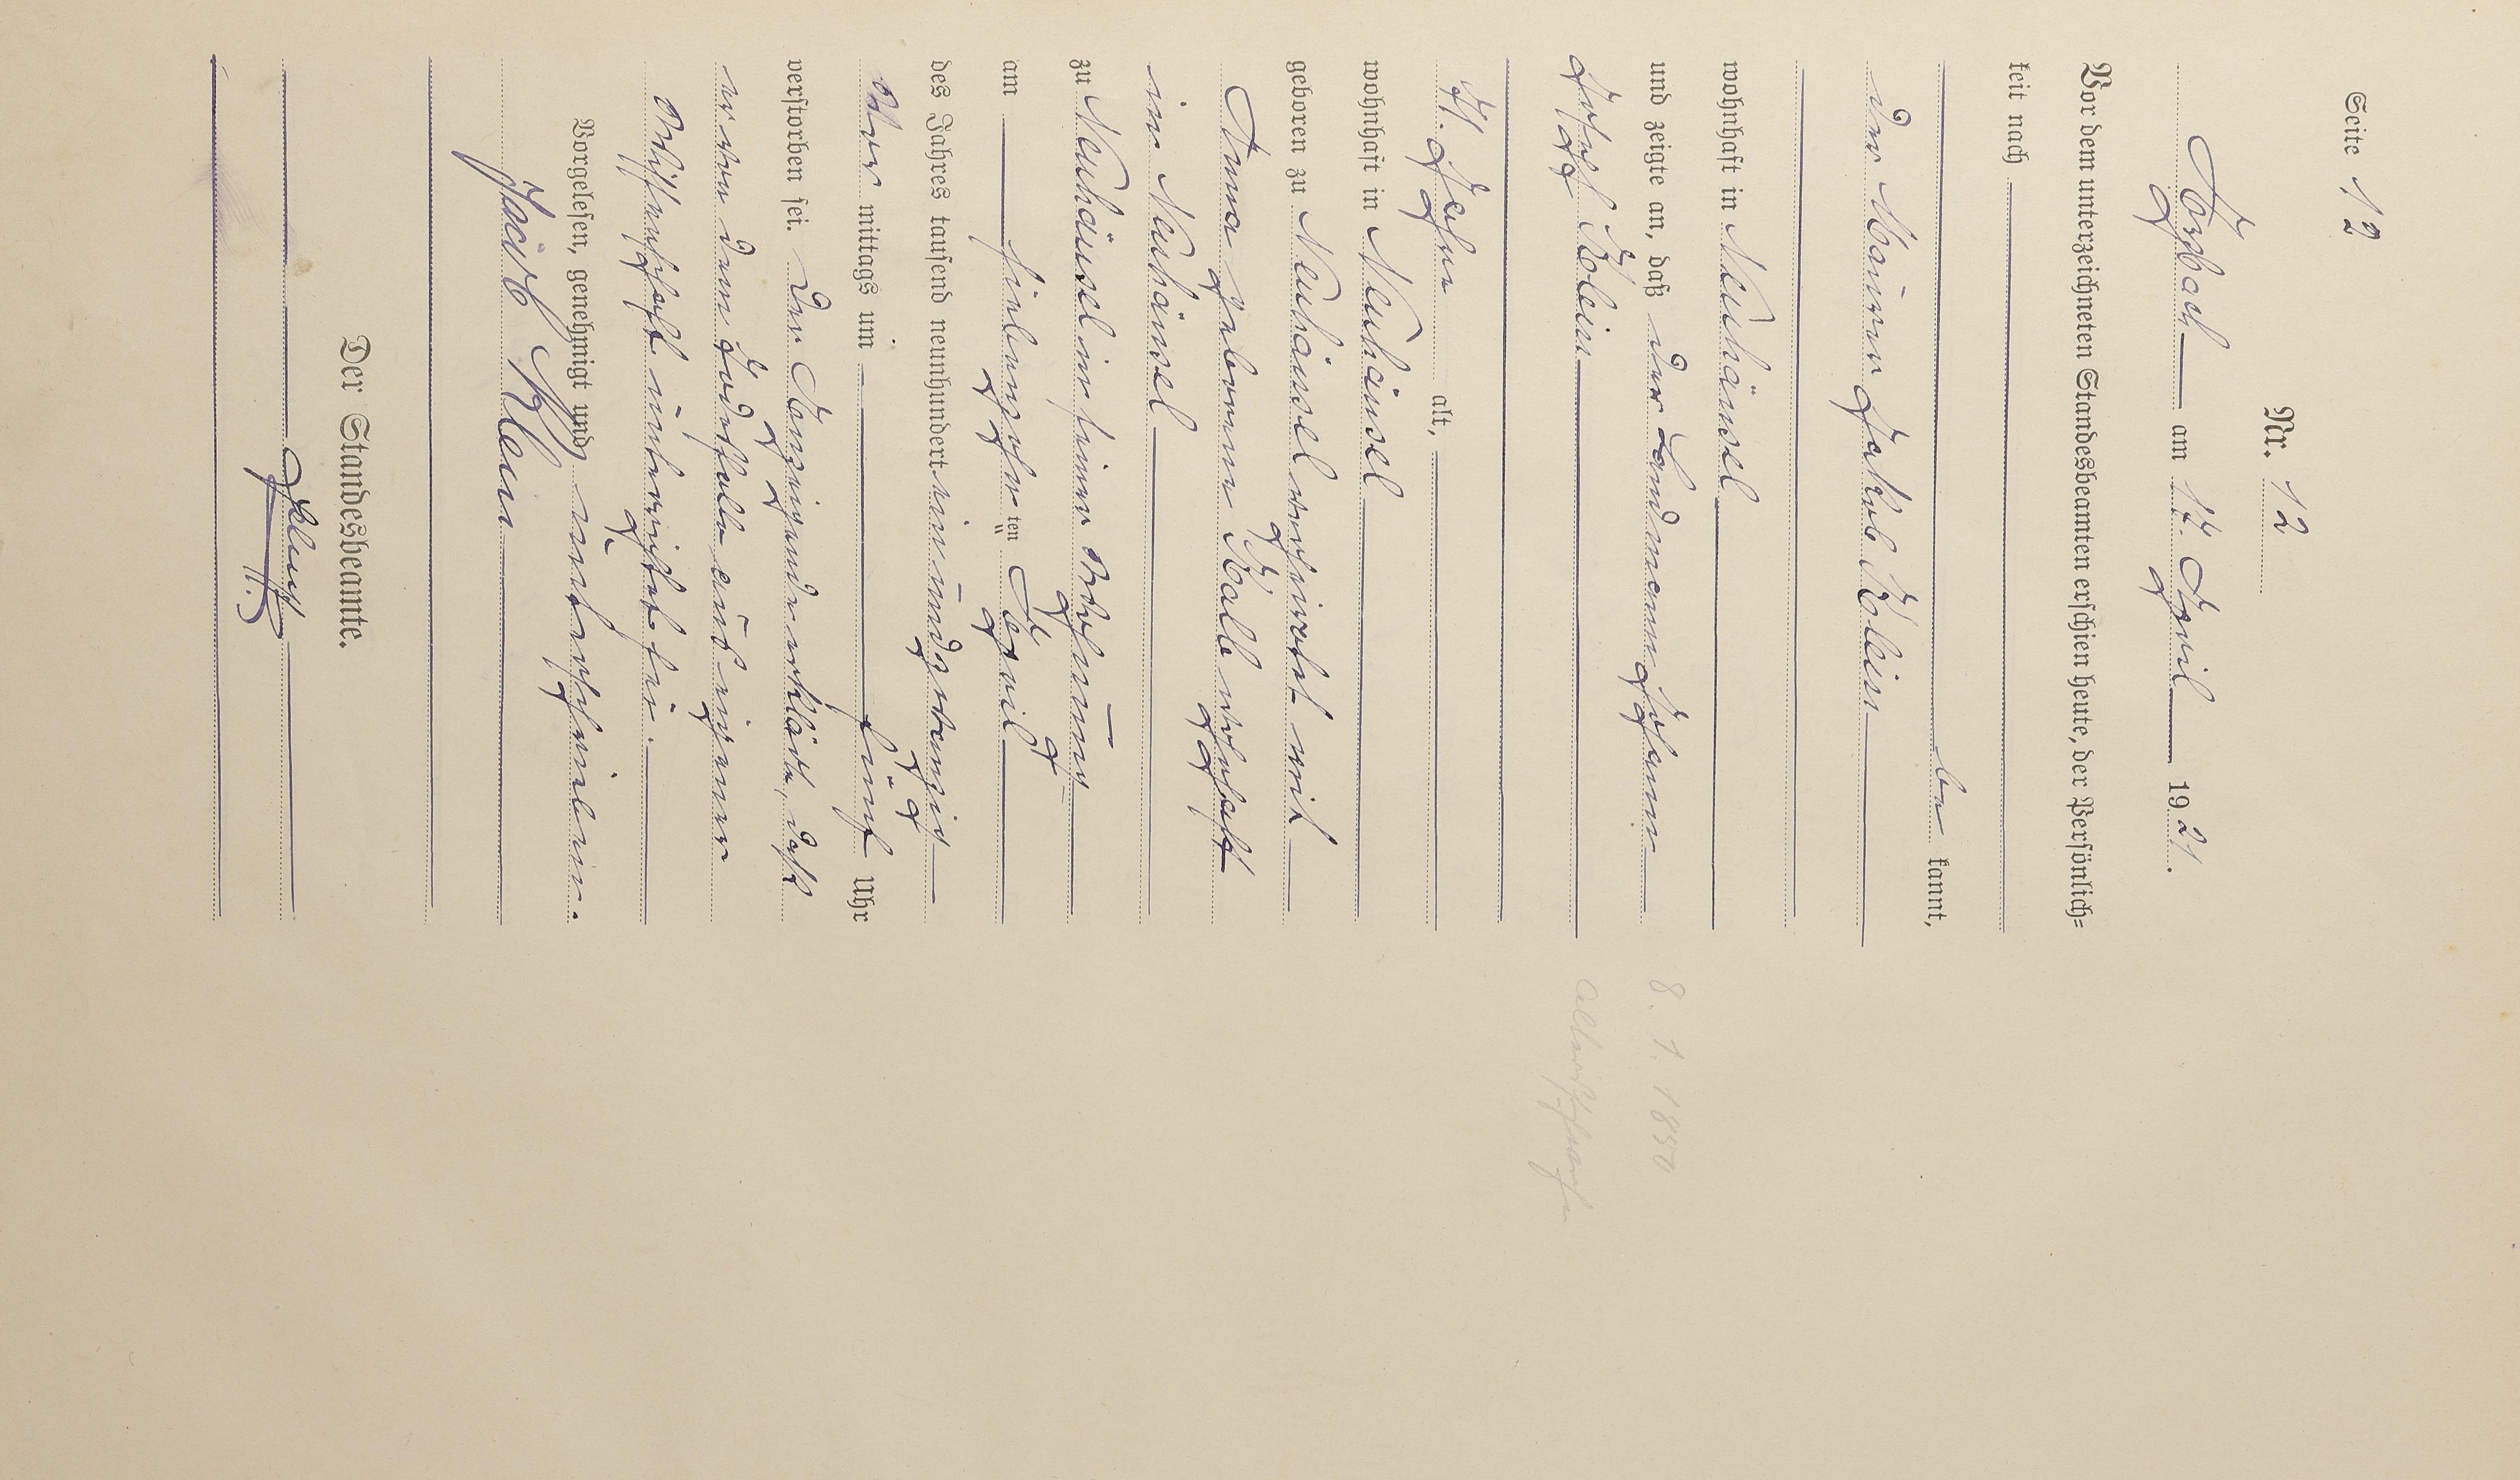 Seite 12
Nr. 12
Körbach am 17. April 1921.
Vor dem unterzeichneten Standesbeamten erschien heute, der Persönlich=
keit nach
be kannt,
der Maurer Jakob Klein
wohnhaft in Neuhäusel
und zeigte an, daß der Landmann Johann
Josef Klein
71. Jahre alt,
wohnhaft in Neuhäusel
geboren zu Neuhäusel verheiratet mit
Anna geborene Kalb wohnhaft
in Neuhäusel
zu Neuhäusel in seiner Wohnung
am siebenzehnten April
des Jahres tausend neunhundert einundzwanzig
Vor mittags um fünf Uhr
verstorben sei. Der Anzeigende erklärte, daß
er von dem Todesfalle aus eigener
Wissenschaft unterrichtet sei.
Vorgelesen, genehmigt und unterschrieben.
Jacob Klein
Der Standesbeamte.
8. 1. 1850